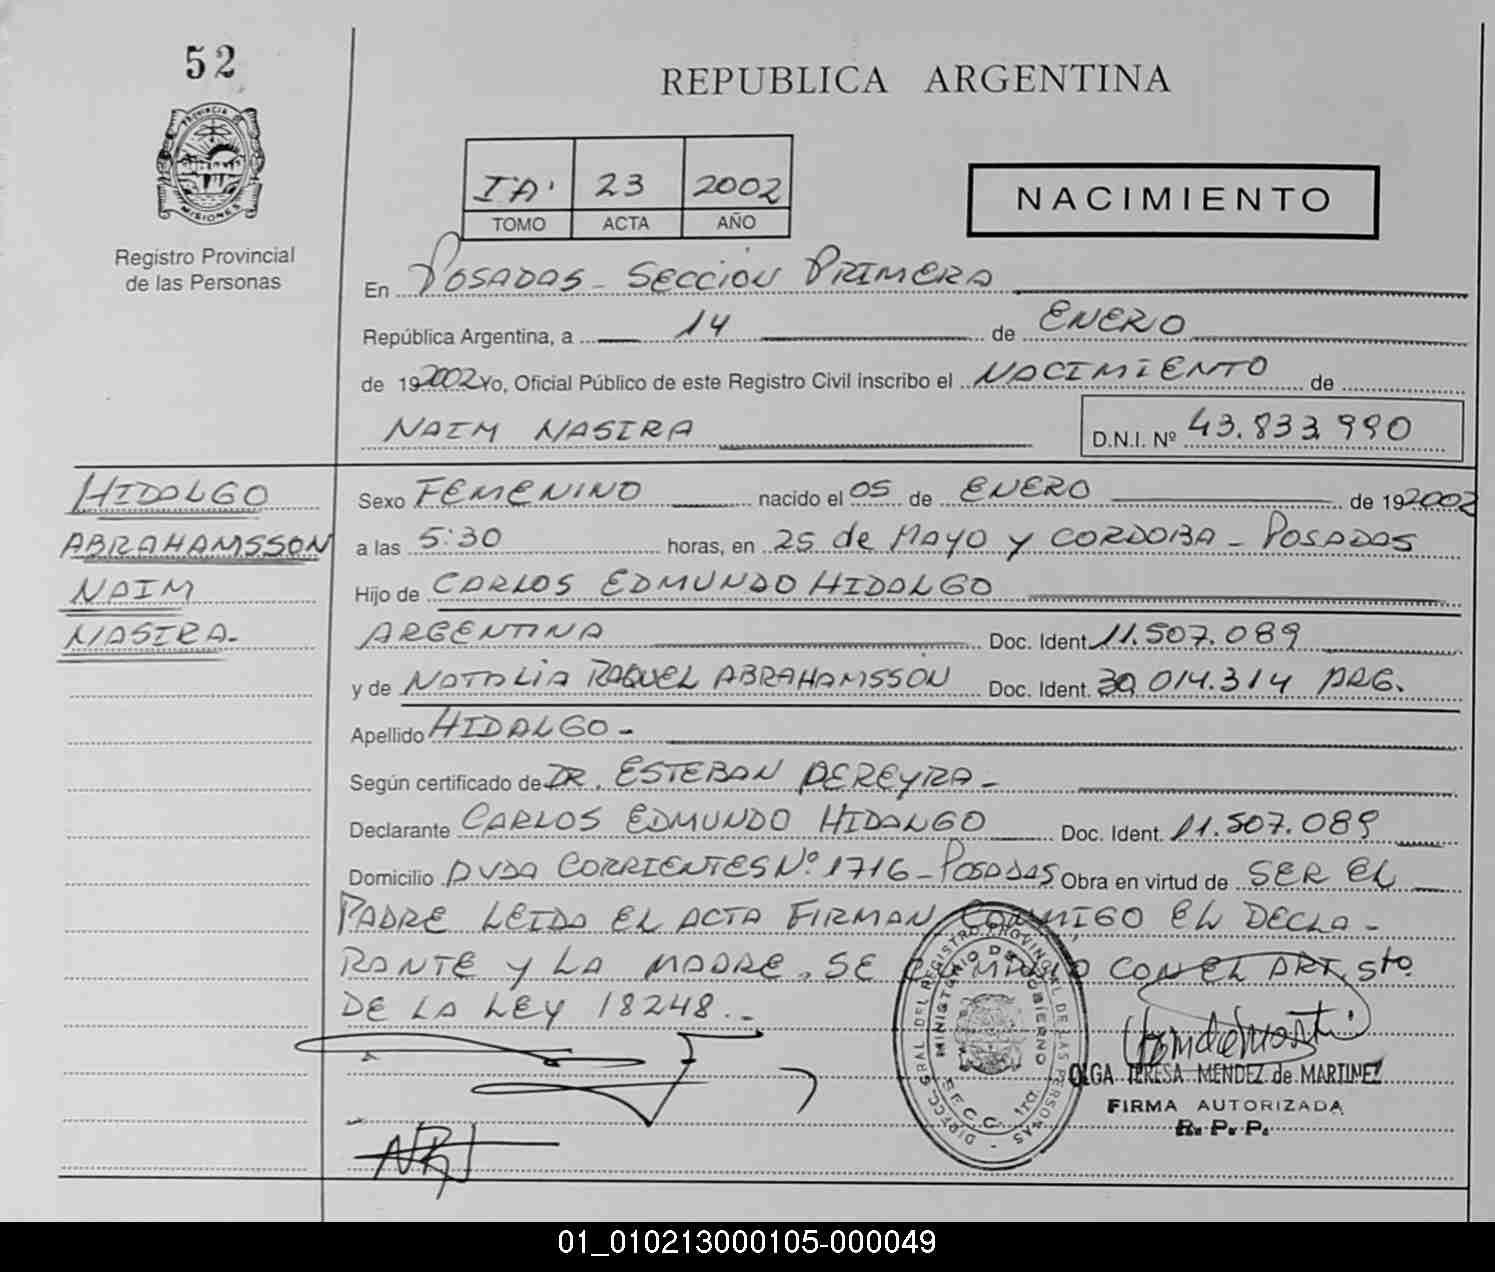 52
REPUBLICA ARGENTINA
PROVINCIA DE
MISIONES
Registro Provincial
de las Personas
Iº"A" 23 2002
TOMO ACTA AÑO
NACIMIENTO
En POSADAS - SECCION PRIMERA
República Argentina, a 14 de ENERO
de 192002 Yo, Oficial Público de este Registro Civil inscribo el NACIMIENTO de
NAIM NASIRA D.N.I. Nº 43.833.990
HIDALGO
ABRAHAMSSON
NAIM
NASIRA.-
Sexo FEMENINO nacido el 05 de ENERO de 192002
a las 5:30 horas, en 25 de MAYO y CORDOBA - POSADAS
Hijo de CARLOS EDMUNDO HIDALGO
ARGENTINA Doc. Ident. 11.507.089
y de NATALIA RAQUEL ABRAHAMSSON Doc. Ident. 30.014.314 ARG.
Apellido HIDALGO -
Según certificado de DR. ESTEBAN PEREYRA -
Declarante CARLOS EDMUNDO HIDALGO Doc. Ident. 11.507.089
Domicilio AVDA CORRIENTES Nº 1716 - POSADAS Obra en virtud de SER EL
PADRE LEIDA EL ACTA FIRMAN CONMIGO EL DECLA-
RANTE y LA MADRE. SE CUMPLIO CON EL ART. 5to
DE LA LEY 18248.-
DIRECC. GRAL DEL REGISTRO PROVINCIAL DE LAS PERSONAS
MINISTERIO DE GOBIERNO
SECC. 1ra.
OLGA TERESA MENDEZ de MARTINEZ
FIRMA AUTORIZADA
R. P. P.
01_010213000105-000049